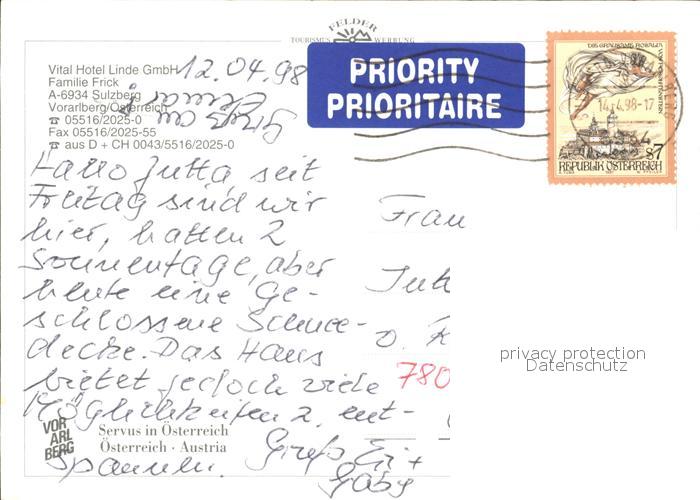 FELDER
TOURISMUS WERBUNG
Vital Hotel Linde GmbH
Familie Frick
A-6934 Sulzberg
Vorarlberg/Österreich
☎ 05516/2025-0
Fax 05516/2025-55
☎ aus D + CH 0043/5516/2025-0
12.04.98
PRIORITY
PRIORITAIRE
14.4.98-17
s7
REPUBLIK ÖSTERREICH
Hallo Jutta seit
Freitag sind wir
hier, hatten 2
Sonnentage, aber
heute eine Ge-
schlossene Schnee-
decke. Das Haus
bietet jedoch viele
Möglichkeiten z. ent-
spannen.
Gruß Eri +
Gaby
Frau
Jutt
780
VOR
ARL
BERG
Servus in Österreich
Österreich · Austria
privacy protection
Datenschutz